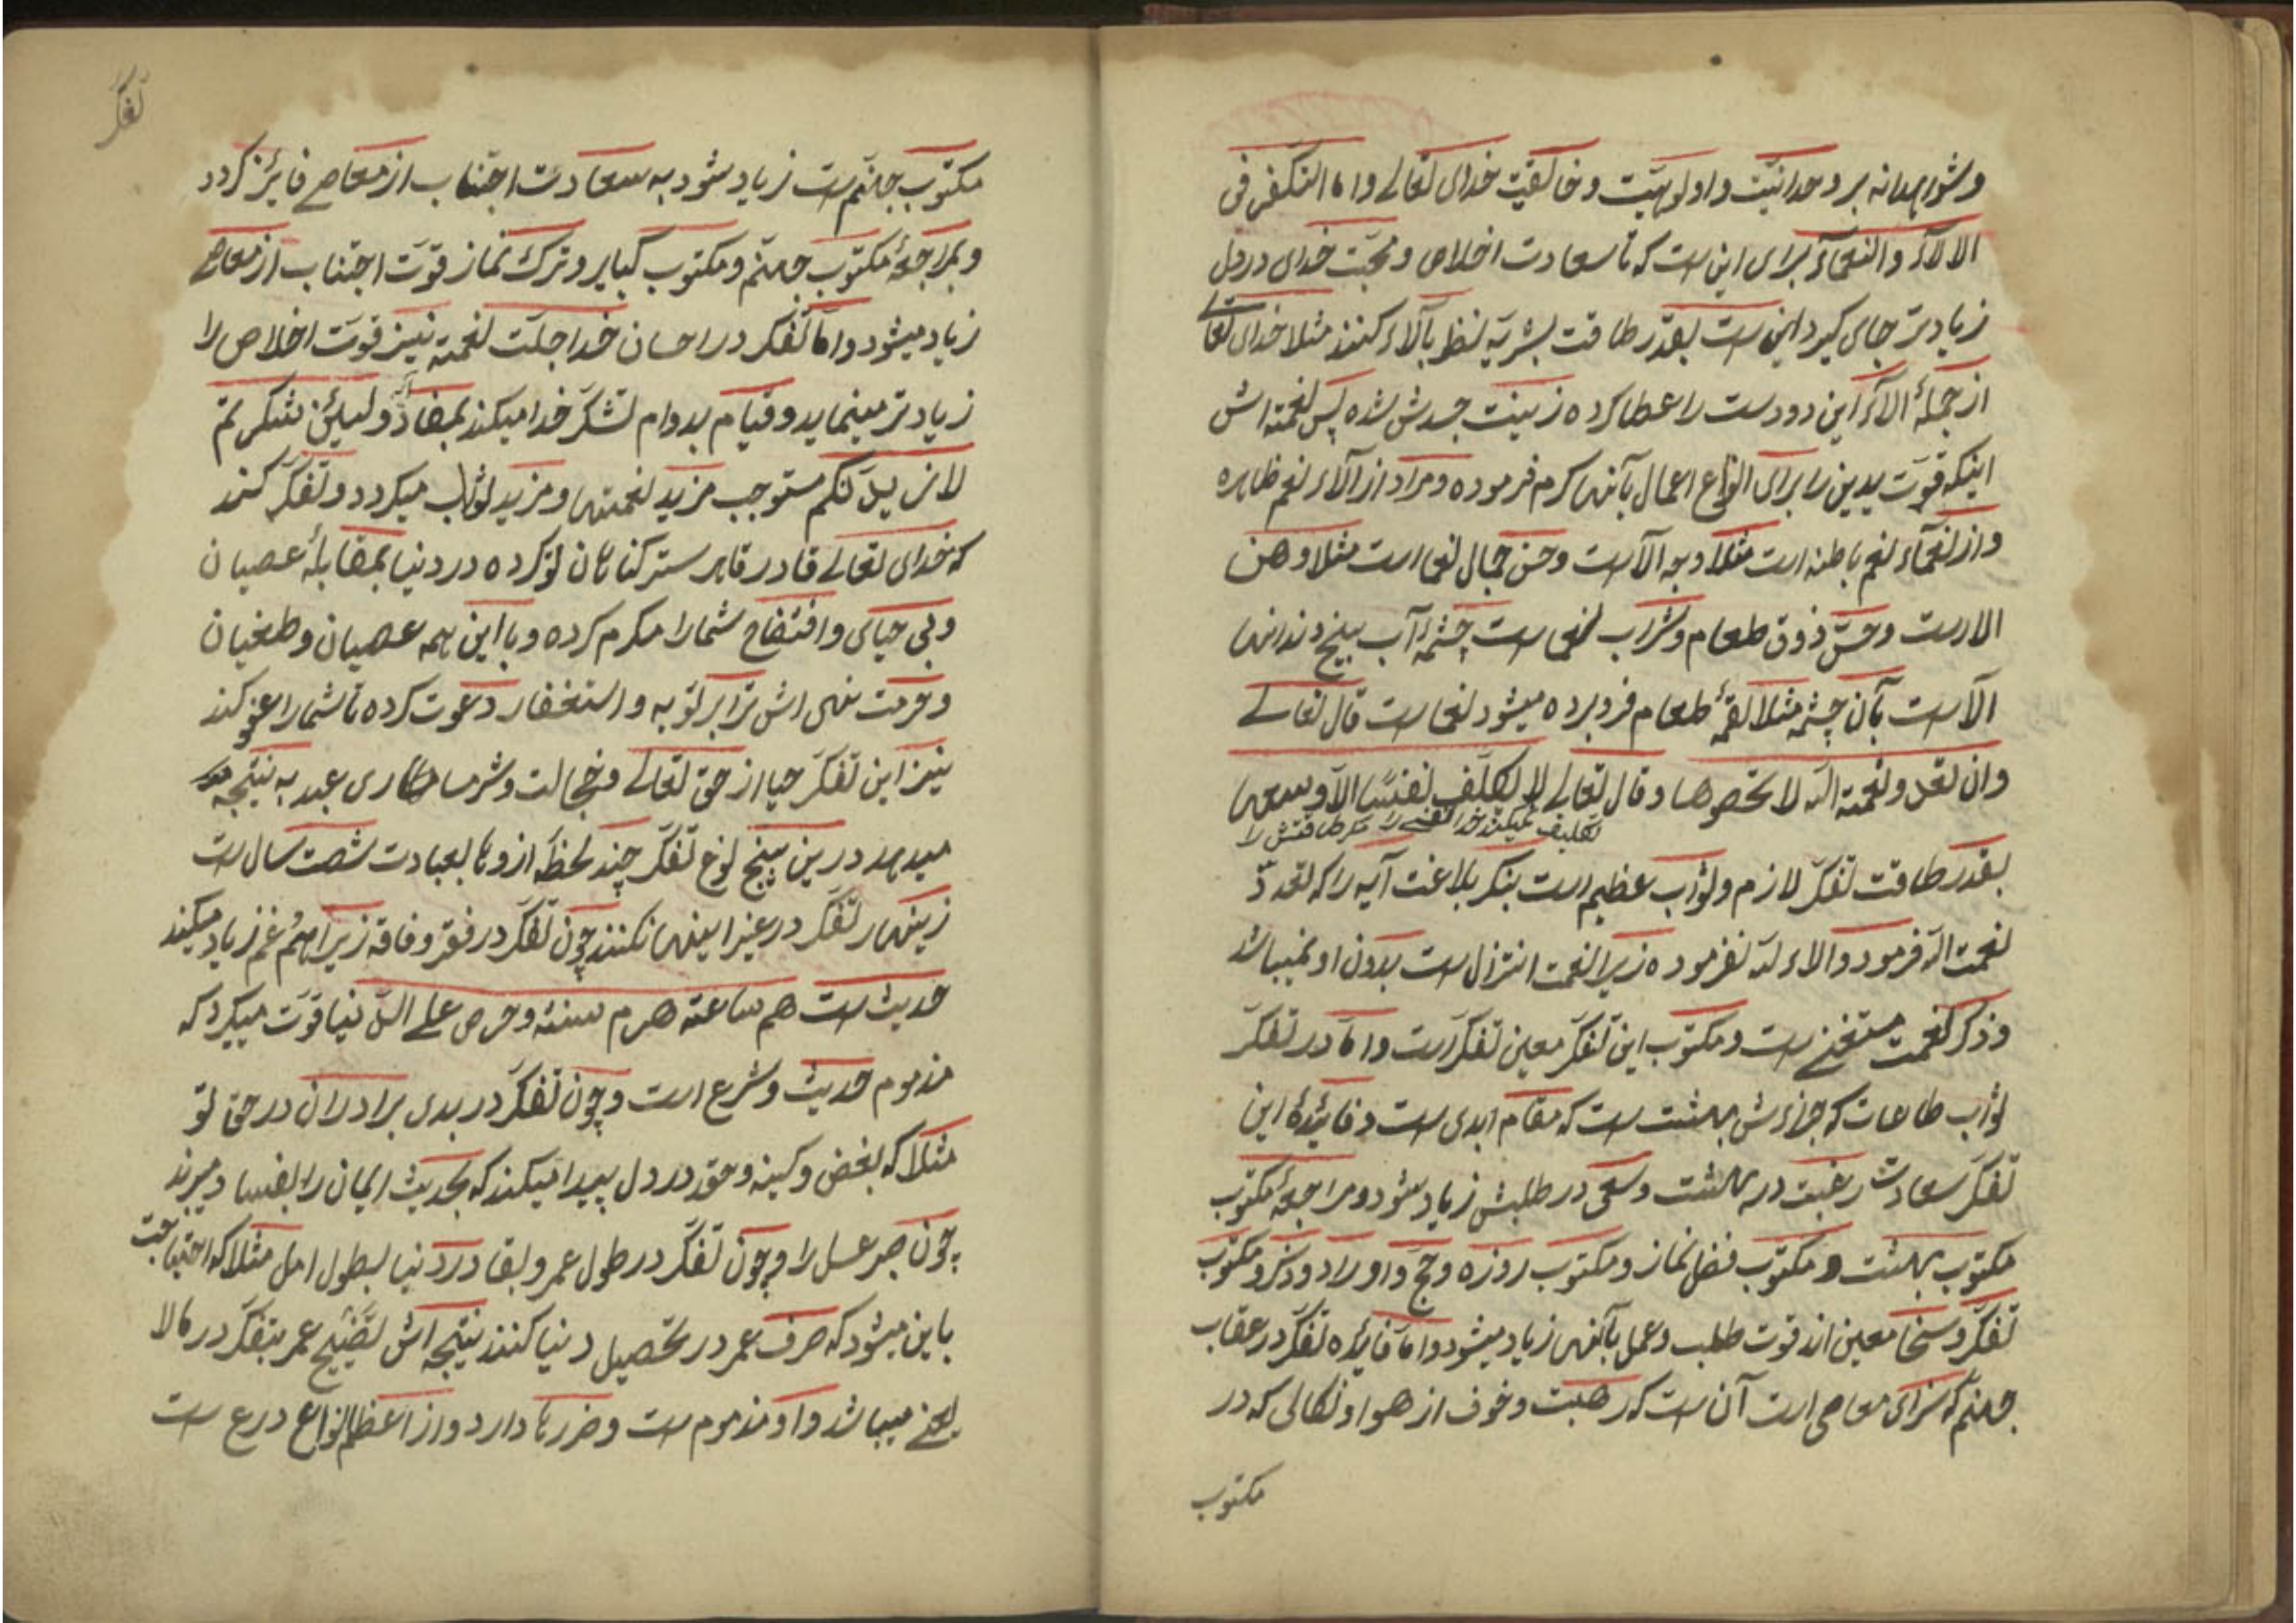 وشواهدانه بر وحدانیّت و اولوهیّت و خالقیّت خدای تعالے و اما التفکر فی
الالآء والنعمآء برای این است که تا سعادت اخلاص و محبّت خدای در دل
زیادتر جای گیرد این است بقدر طاقت بشریّه نظر بآلاء کنند مثلا خدای تعالے
از جملهٔ الآء این دو دست را عطا کرده زینت جسدش شده پس نعمته اش
اینکه قوّت یدین را برای انواع اعمال بآنها کرم فرموده و مراد از آلاء نعم ظاهره
و از نعمآء نعم باطنه است مثلا وجه الآست و حسن جمال نعما است مثلا وهن
الاست و حسّ ذوق طعام و شراب نعما ست چشمهٔ آب بیخ دندانها
الآست بآن چشمه مثلا لقمهٔ طعام فرو برده میشود نعما ست قال تعالے
وان تعدوا نعمة الله لا تحصوها و قال تعالے لا یکلّف نفسًا الّا وسعها
تکلیف نمیکند خدا نفسے را مگر طاقتش را
بقدر طاقت تفکر لازم و ثواب عظیم است بنکر بلاغت آیه را که تعدّد
نعمت الله فرمود و الاء لله نفرموده زیرا نعمت انتزال است بدون او نمیباشد
و ذکر نعمت مستغنے ست و مکتوب این تفکر معین تفکر است و امّا در تفکر
ثواب طاعات که جزاءش بهشت ست که مقام ابدی ست و فائیدهٔ این
تفکر سعادت رغبت در بهشت و سعی در طلبش زیاد شود و مراجعهٔ مکتوب
مکتوب بهشت و مکتوب فضل نماز و مکتوب روزه و حجّ و اوراد و ذکر و مکتوب
تفکر و سخا معین اند قوت طلب و عمل بآنها زیاد میشود و امّا فایده تفکر در عقاب
جهنّم که سزای معاصی است آن ست که رهبت و خوف از هوا و نکالی که در
مکتوب
تفکر
مکتوب جهنّم ست زیاد شود به سعادت اجتناب از معاصے فایز کردد
و بمراجعهٔ مکتوب جهنّم و مکتوب کبایر و ترک نماز قوّت اجتناب از معاصے
زیاد میشود و امّا تفکر در احسان خدا جلّت نعمته نیز قوّت اخلاص را
زیادتر مینماید و قیام بدوام تشکر خدا میکند بمفاد و لئن شکرتم
لازیدنّکم مستوجب مزید نعمتها و مزید ثواب میکردد و تفکر کنند
که خدای تعالے قادر قاهر ستر کناهان تو کرده در دنیا بمقابلهٔ عصیان
و بی حیای و افتضاح شما را مکرم کرده و با این همه عصیان و طغیان
و فرصت نهی اش ترا بر توبه و استغفار دعوت کرده تا شما را عفو کند
نیز این تفکر حیا از حق تعالے و خجالت و شرمساری عبد به نتیجه
میدهد درین پنج نوع تفکر چند لحظهٔ از وها بعبادت شصت سال ست
زینهار تفکر در غیر اینها نکنند چون تفکر در فقر و فاقه زیرا همّ غم زیاد میکند
حدیث ست هم ساعته هرم سنته و حرص علے الدّنیا قوّت میکیرد که
مذموم حدیث و شرع است و چون تفکر در بدی برادران در حق تو
مثلا که بغض و کینه و حقد در دل پیدا میکند که بحدیث ایمان را بفساد میبرند
چون صبر عسل را و چون تفکر در طول عمر و بقا در دنیا بطول امل مثلا که احتیاجت
باین میشود که صرف عمر در تحصیل دنیا کنند نتیجه اش تضییع عمر بتفکر در مالا
یعنے میباشد و او مذموم ست و ضررها دارد و از اعظم انواع درع ست